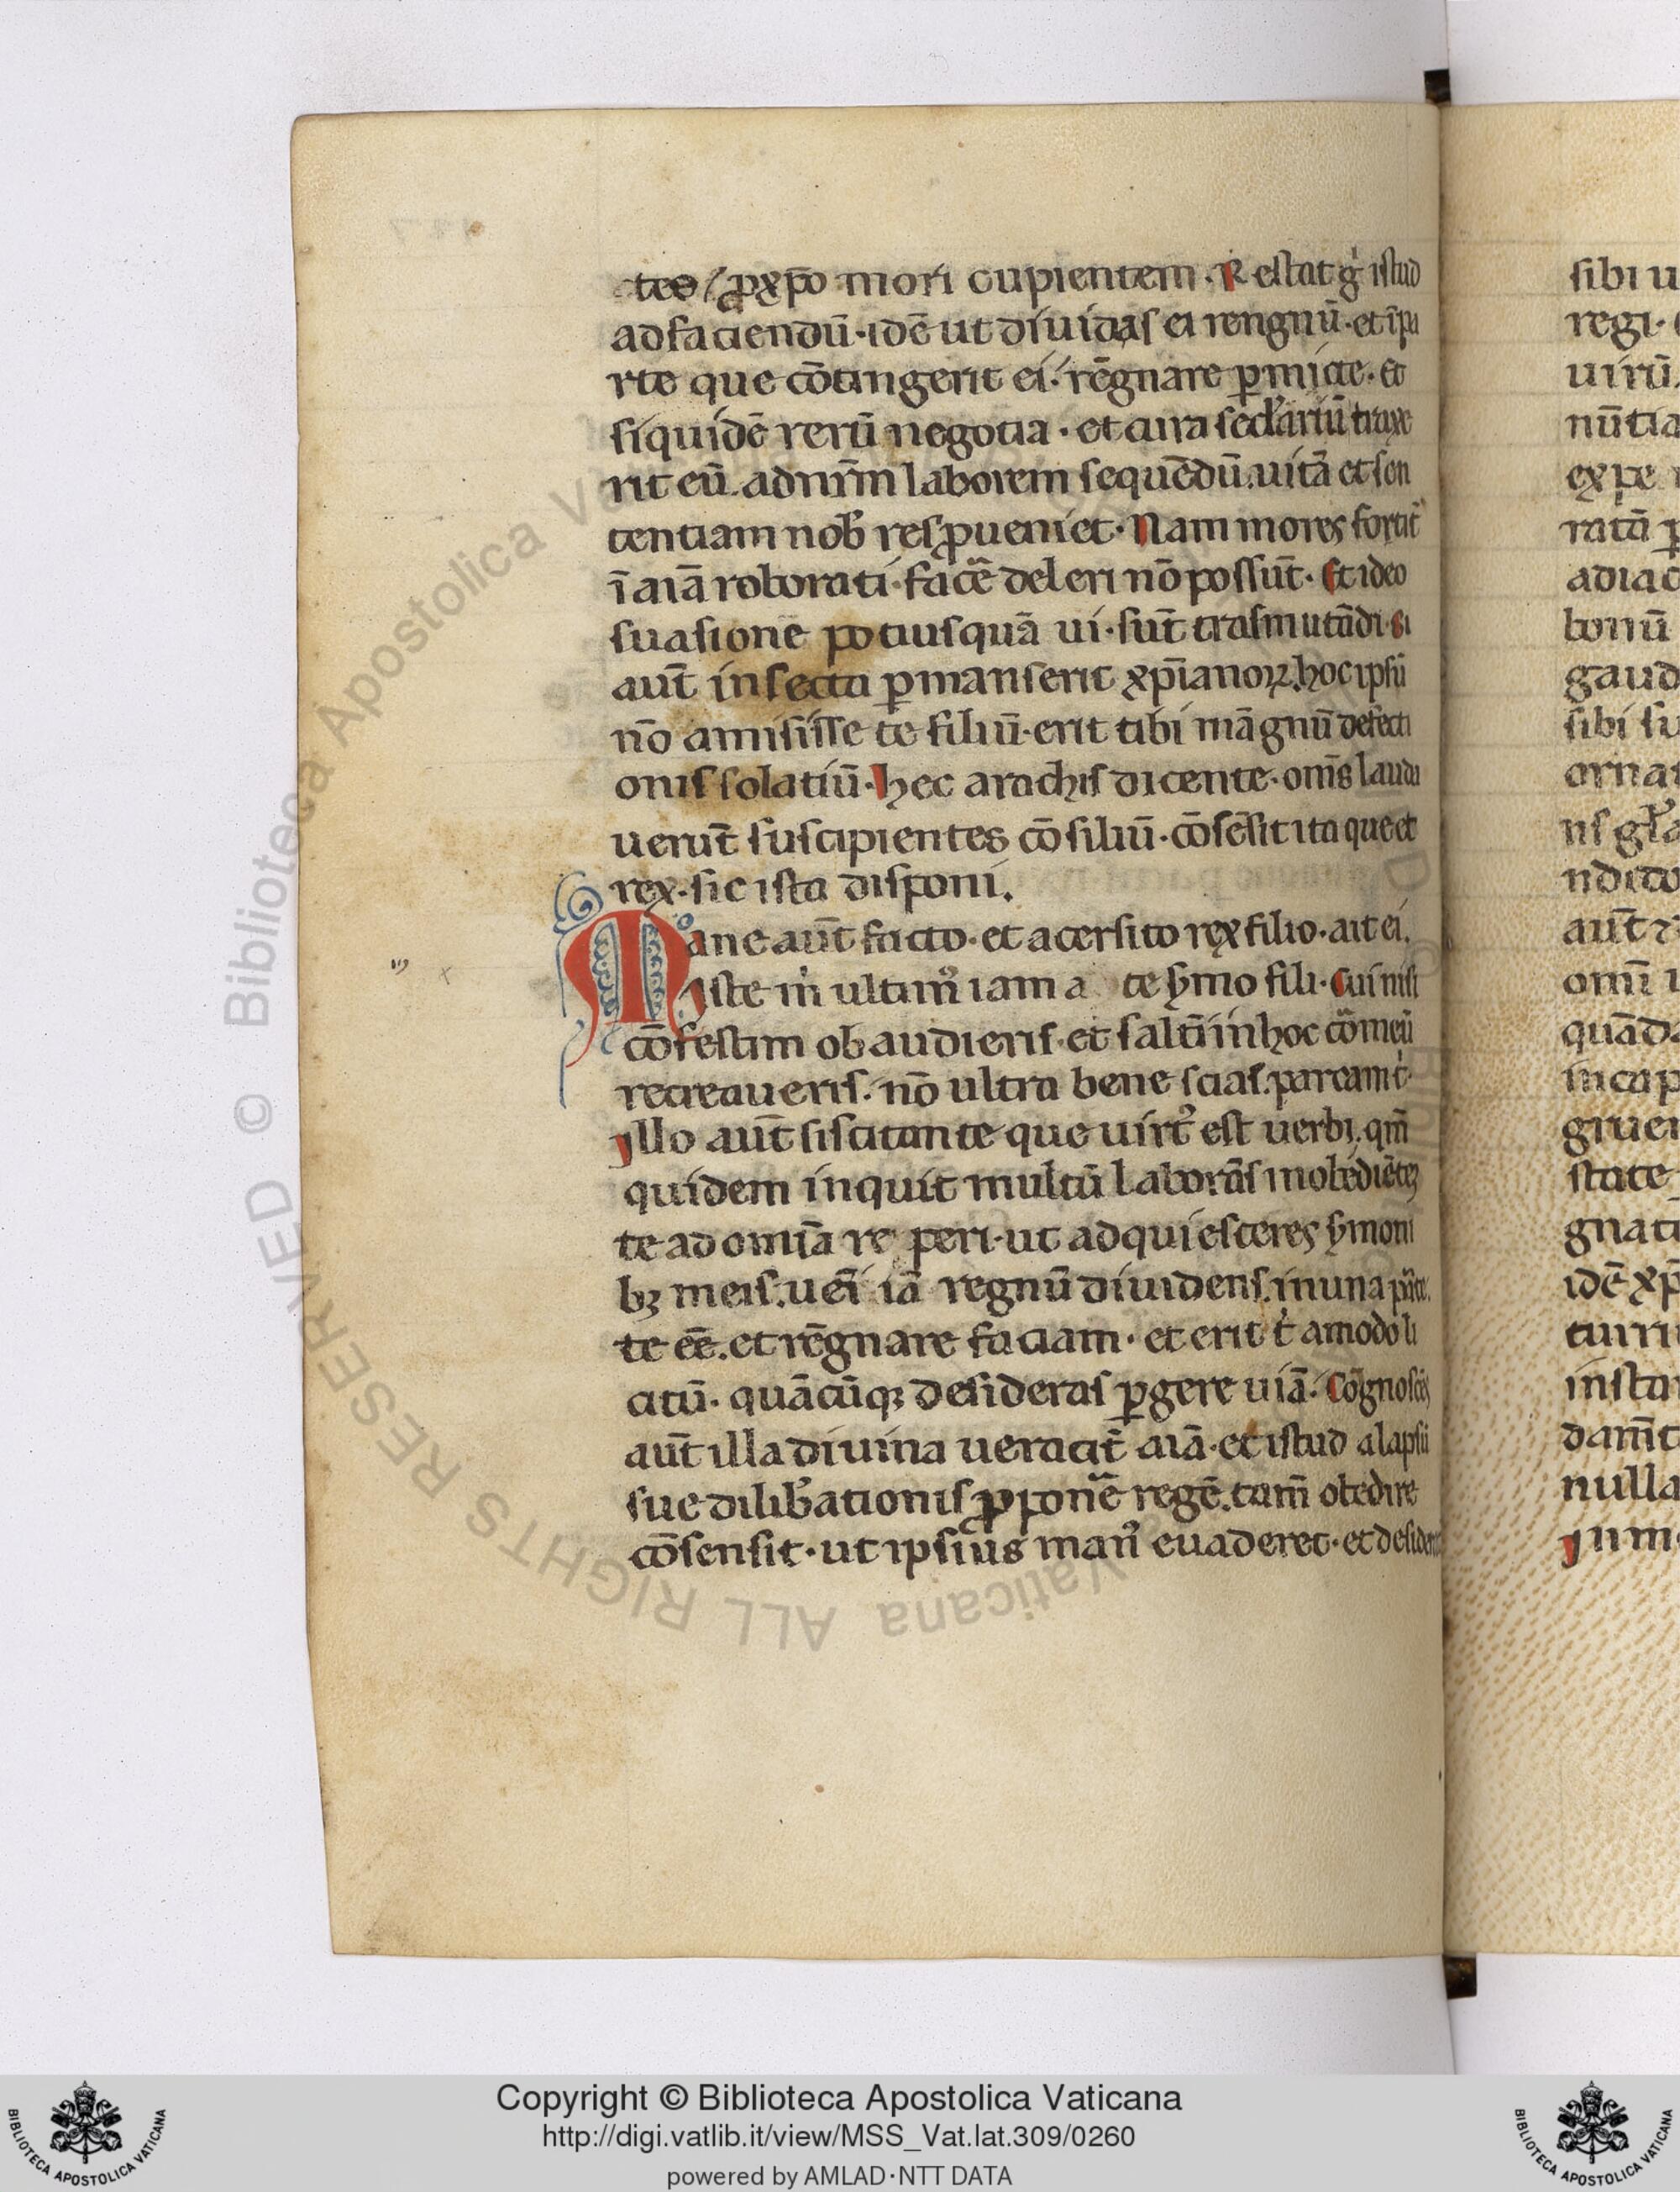 cteo / ꝓ xp̄o mori cupientem. Restat g̊ istud
ad faciendū. idē ut diuidas ei rengnū. et ī pa
rte que cōtingerit ei. rēgnare ꝑmicte. Et
siquidē rerū negotia. et cura sed'ariū traxe
rit eū. ad nr̄m laborem sequēdū. uitā et sen
tentiam nob̄ resꝓueniet. Nam mores fortit̄
ī aīa roborati. facē deleri nō possūt. Et ideo
suasione potius quā ui. sūt trasmutādi. Si
aūt in secta ꝑmanserit xp̄ianoꝝ. hoc ipsū
nō amisisse te filiū. erit tibi māgnū defecti
onis solatiū. Hec arachis dicente. om̄s lauda
uerūt suscipientes cōsiliū. cōsēsit itaque et
rex. sic ista disponi.
Mane aūt facto. et acersito rex filio. ait ei.
Iste m̄ ultim᾿ iam a te s̄mo fili. Cui nisi
cōfestim obaudieris. et saltī in hoc cō meū
recreaueris. nō ultra bene scias. parcam t̄.
Illo aūt siscitante que uirt᾿ est uerbi. qm̄
quidem inquit multū laborās inobediētez
te ad omīa reperi. ut adquiesceres s̄moni
bꝫ meis. uēi iā regnū diuidens. in una pᵃte.
te eē. et rēgnare faciam. et erit t̄ amodo li
citū. quācūqꝫ desideras ꝑgere uiā. Cōgnoscēs
aūt illa diuina ueracit̄ aīa. et istud a lapsū
sue dilib̄ationis ꝓponē regē. tam̄ obedire
cōsensit. ut ipsius man᾿ euaderet. et desider
sibi u
regi.
uirū.
nūtia
expe
ratā p
adiac
bonū
gaud
sibi su
ornat
ris gl̄a
ndicto
aūt
omī
quāda
in cap
gruen
state
gnati
idē xp̄
curri
instan
dam̄t
nulla
Inm
Copyright © Biblioteca Apostolica Vaticana
http://digi.vatlib.it/view/MSS_Vat.lat.309/0260
powered by AMLAD·NTT DATA
BIBLIOTECA APOSTOLICA VATICANA
BIBLIOTECA APOSTOLICA VATICANA